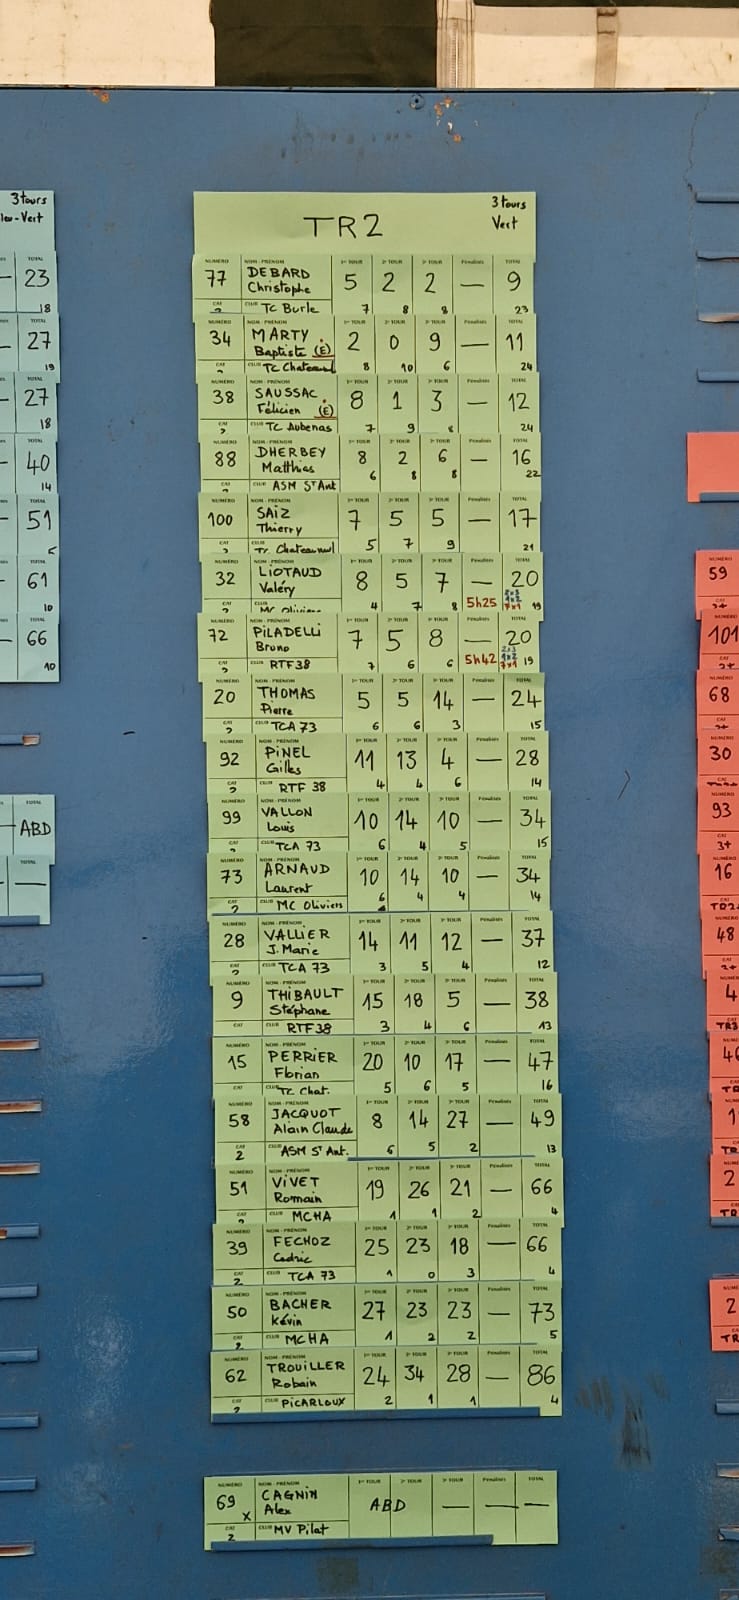 3 tours
Vert
23
18
27
19
27
18
40
14
51
61
10
66
10
ABD
TR2
3 tours
Vert
NUMÉRO NOM - PRÉNOM 1er TOUR 2e TOUR 3e TOUR Pénalités TOTAL
77 DEBARD Christophe 5 2 2 — 9
CAT 2 CLUB TC Burle 7 8 8 23
34 MARTY Baptiste (E) 2 0 9 — 11
CAT 2 CLUB TC Chateauneuf 8 10 6 24
38 SAUSSAC Félicien (E) 8 1 3 — 12
CAT 2 CLUB TC Aubenas 7 9 8 24
88 DHERBEY Matthias 8 2 6 — 16
CAT 2 CLUB ASM St Ant 6 8 8 22
100 SAIZ Thierry 7 5 5 — 17
CAT 2 CLUB TC Chateauneuf 5 7 9 21
32 LIOTAUD Valéry 8 5 7 — 20
CAT 2 CLUB MC Oliviers 4 7 8 5h25 19
72 PILADELLI Bruno 7 5 8 — 20
CAT 2 CLUB RTF38 7 6 6 5h42 19
20 THOMAS Pierre 5 5 14 — 24
CAT 2 CLUB TCA 73 6 6 3 15
92 PINEL Gilles 11 13 4 — 28
CAT 2 CLUB RTF 38 4 4 6 14
99 VALLON Louis 10 14 10 — 34
CAT 2 CLUB TCA 73 6 4 5 15
73 ARNAUD Laurent 10 14 10 — 34
CAT 2 CLUB MC Oliviers 6 4 4 14
28 VALLIER J. Marie 14 11 12 — 37
CAT 2 CLUB TCA 73 3 5 4 12
9 THIBAULT Stéphane 15 18 5 — 38
CAT CLUB RTF38 3 4 6 13
15 PERRIER Florian 20 10 17 — 47
CAT CLUB TC Chat. 5 6 5 16
58 JACQUOT Alain Claude 8 14 27 — 49
CAT 2 CLUB ASM St Ant. 6 5 2 13
51 VIVET Romain 19 26 21 — 66
CAT 2 CLUB MCHA 1 1 2 4
39 FECHOZ Cedric 25 23 18 — 66
CAT 2 CLUB TCA 73 1 0 3 4
50 BACHER Kévin 27 23 23 — 73
CAT 2 CLUB MCHA 1 2 2 5
62 TROUILLER Robain 24 34 28 — 86
CAT 2 CLUB PICARLOUX 2 1 1 4
69 x CAGNIN Alex ABD — — —
CAT 2 CLUB MV Pilat
59
101
68
30
93
3+
16
48
4